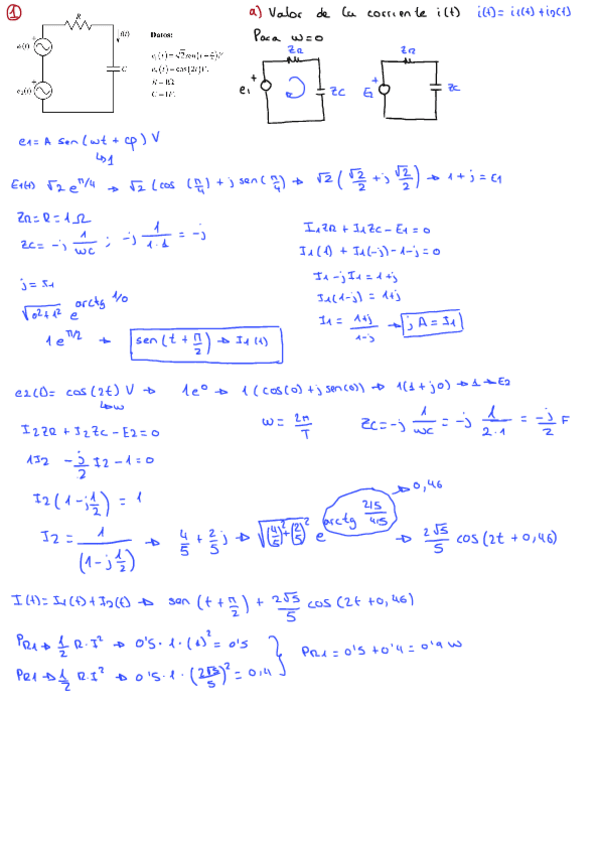 1
a) Valor de la corriente i(t) i(t) = i1(t) + i2(t)
Para w=0
R
i(t)
C
e1(t)
e2(t)
Datos:
R = 1Ω
C = 1F.
ZR
e1
ZC
ZR
E2
ZC
e1 = A sen (wt + φ) V
↳ 1
E1(t) √2 e^π/4 → √2 (cos (π/4) + j sen (π/4) → √2 (√2/2 + j √2/2) → 1 + j = E1
ZR = R = 1 Ω
ZC = -j 1/wC ; -j 1/1·1 = -j
I1ZR + I1ZC - E1 = 0
I1(1) + I1(-j) - 1 - j = 0
I1 - jI1 = 1+j
I1(1-j) = 1+j
I1 = 1+j/1-j → j A = I1
j = I1
√0²+1² e^arctg 1/0
1 e^π/2 → sen(t + π/2) → I1(t)
e2(t) = cos(2t) V → 1e⁰ → 1 (cos(0) + j sen(0)) → 1(1 + j0) → 1 → E2
↳ w
I2ZR + I2ZC - E2 = 0
w = 2π/T
ZC = -j 1/wC = -j 1/2·1 = -j/2 F
1I2 - j/2 I2 - 1 = 0
I2 (1 - j 1/2) = 1
I2 = 1/(1 - j 1/2) → 4/5 + 2/5 j → √(4/5)² + (2/5)² e^arctg 2/5/4/5 → 0,46 → 2√5/5 cos(2t + 0,46)
I(t) = I1(t) + I2(t) → sen (t + π/2) + 2√5/5 cos (2t + 0,46)
PR1 → 1/2 R·I² → 0'5 · 1 · (1)² = 0'5
PR1 → 1/2 R·I² → 0'5 · 1 · (2√5/5)² = 0,4
PR1 = 0'5 + 0'4 = 0'9 W